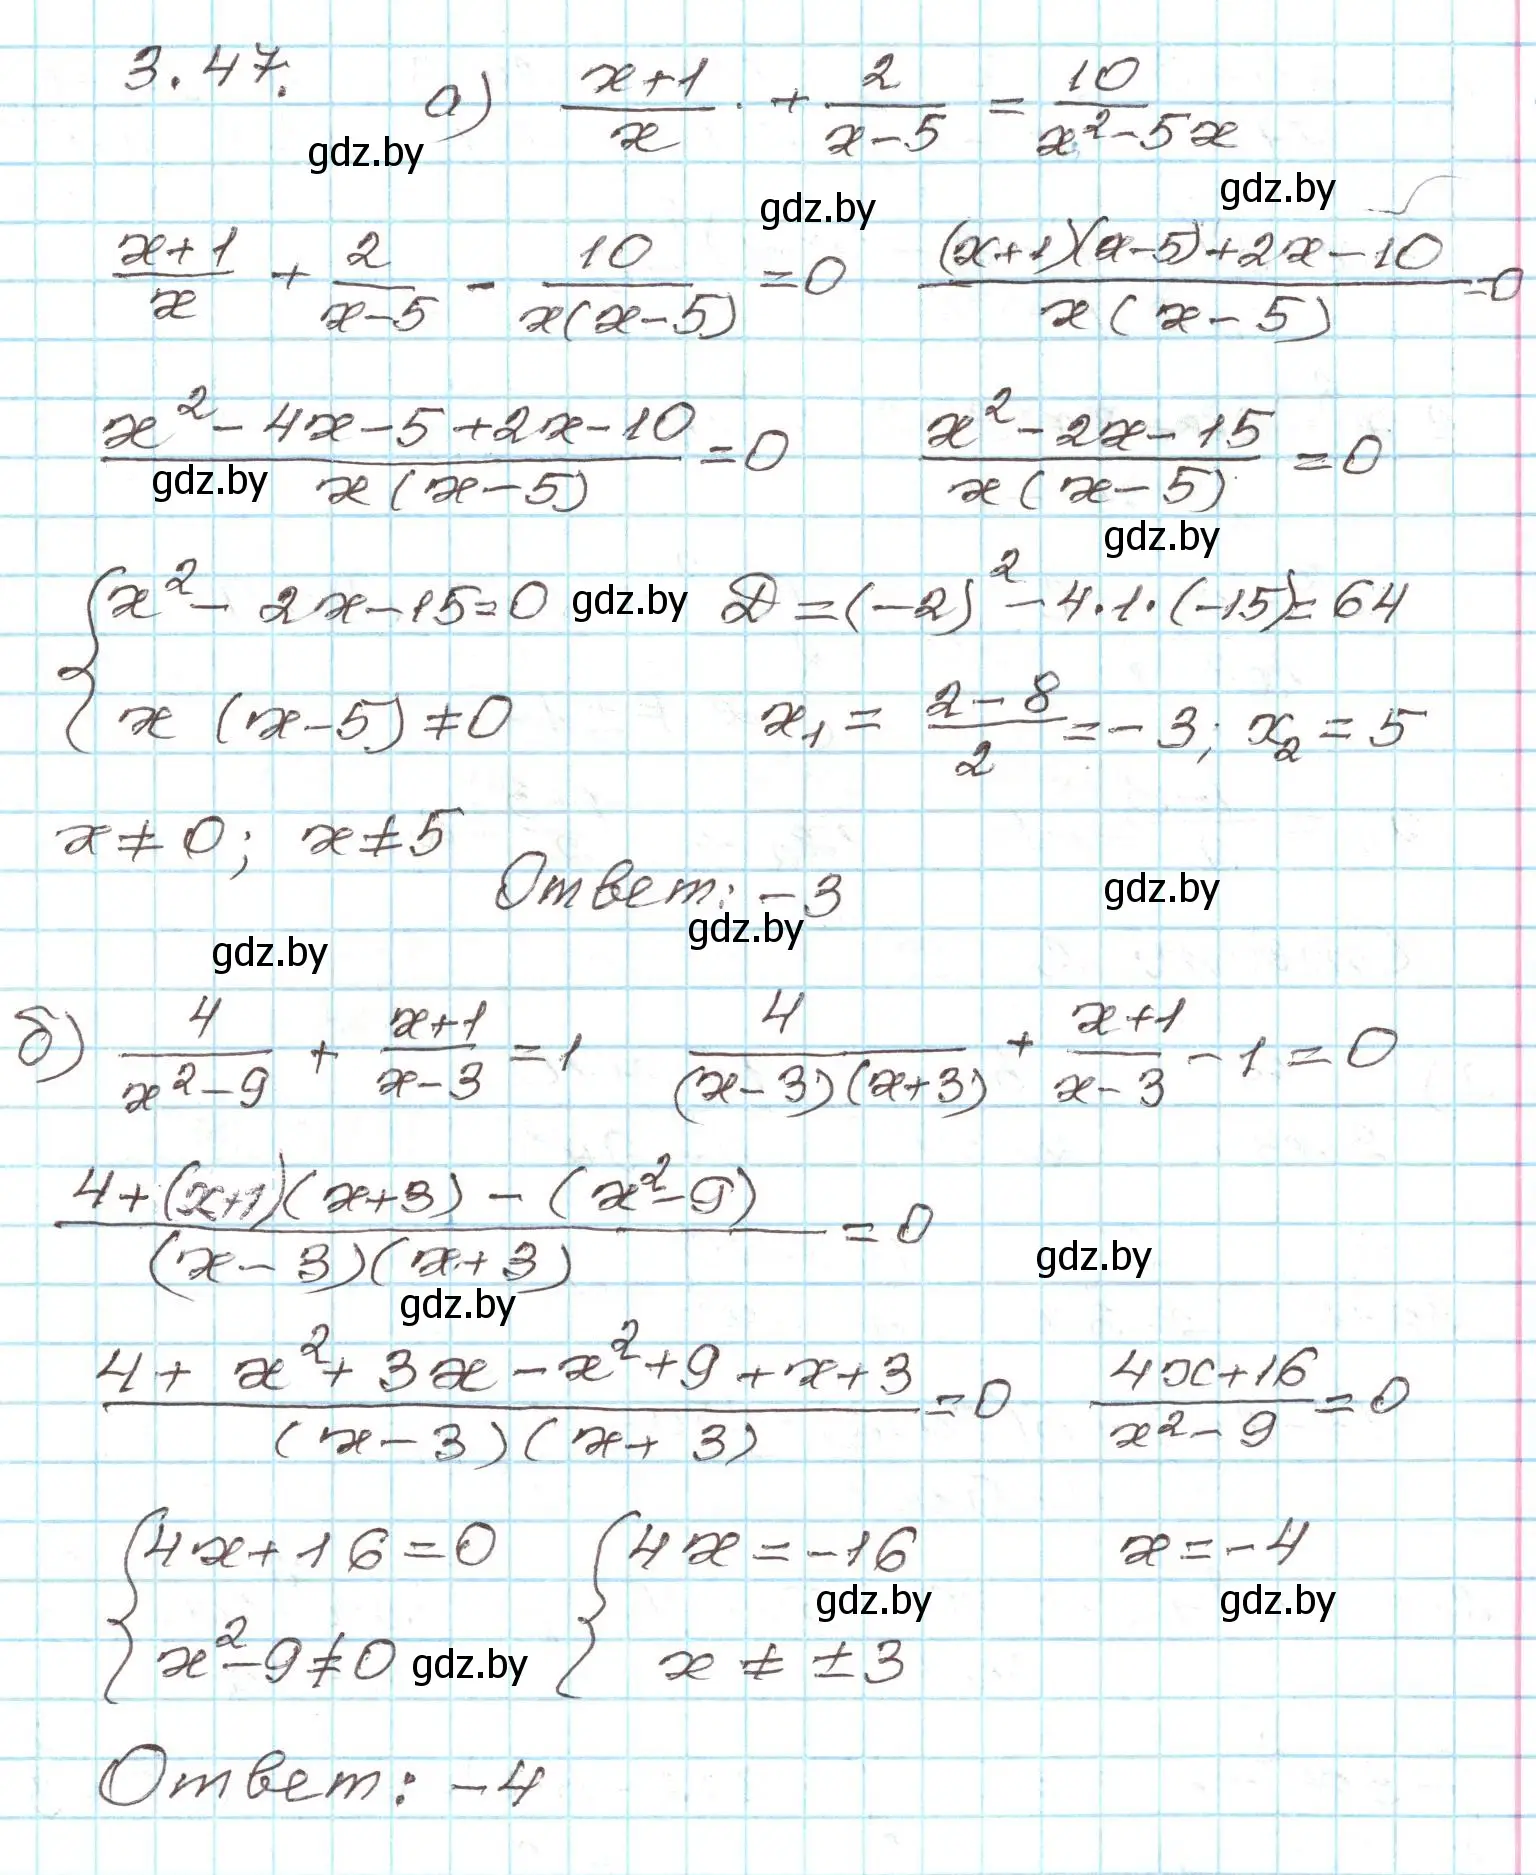 3.47. а) (x+1)/x · + 2/(x-5) = 10/(x²-5x)
gdz.by
gdz.by
gdz.by
(x+1)/x + 2/(x-5) - 10/(x(x-5)) =0    ((x+1)(x-5)+2x-10)/(x(x-5)) =0
(x²-4x-5+2x-10)/(x(x-5)) =0    (x²-2x-15)/(x(x-5)) =0
gdz.by
gdz.by
{ x²-2x-15=0    gdz.by    D=(-2)²-4·1·(-15)=64
x(x-5)≠0    x₁ = (2-8)/2 =-3; x₂=5
x≠0; x≠5
Ответ: -3
gdz.by
gdz.by
gdz.by
б) 4/(x²-9) + (x+1)/(x-3) =1    4/((x-3)(x+3)) + (x+1)/(x-3) -1=0
(4+(x+1)(x+3)-(x²-9))/((x-3)(x+3)) =0
gdz.by
gdz.by
(4+x²+3x-x²+9+x+3)/((x-3)(x+3)) =0    (4x+16)/(x²-9) =0
{ 4x+16=0    { 4x=-16    x=-4
gdz.by    gdz.by
x²-9≠0    gdz.by    x≠±3
Ответ: -4